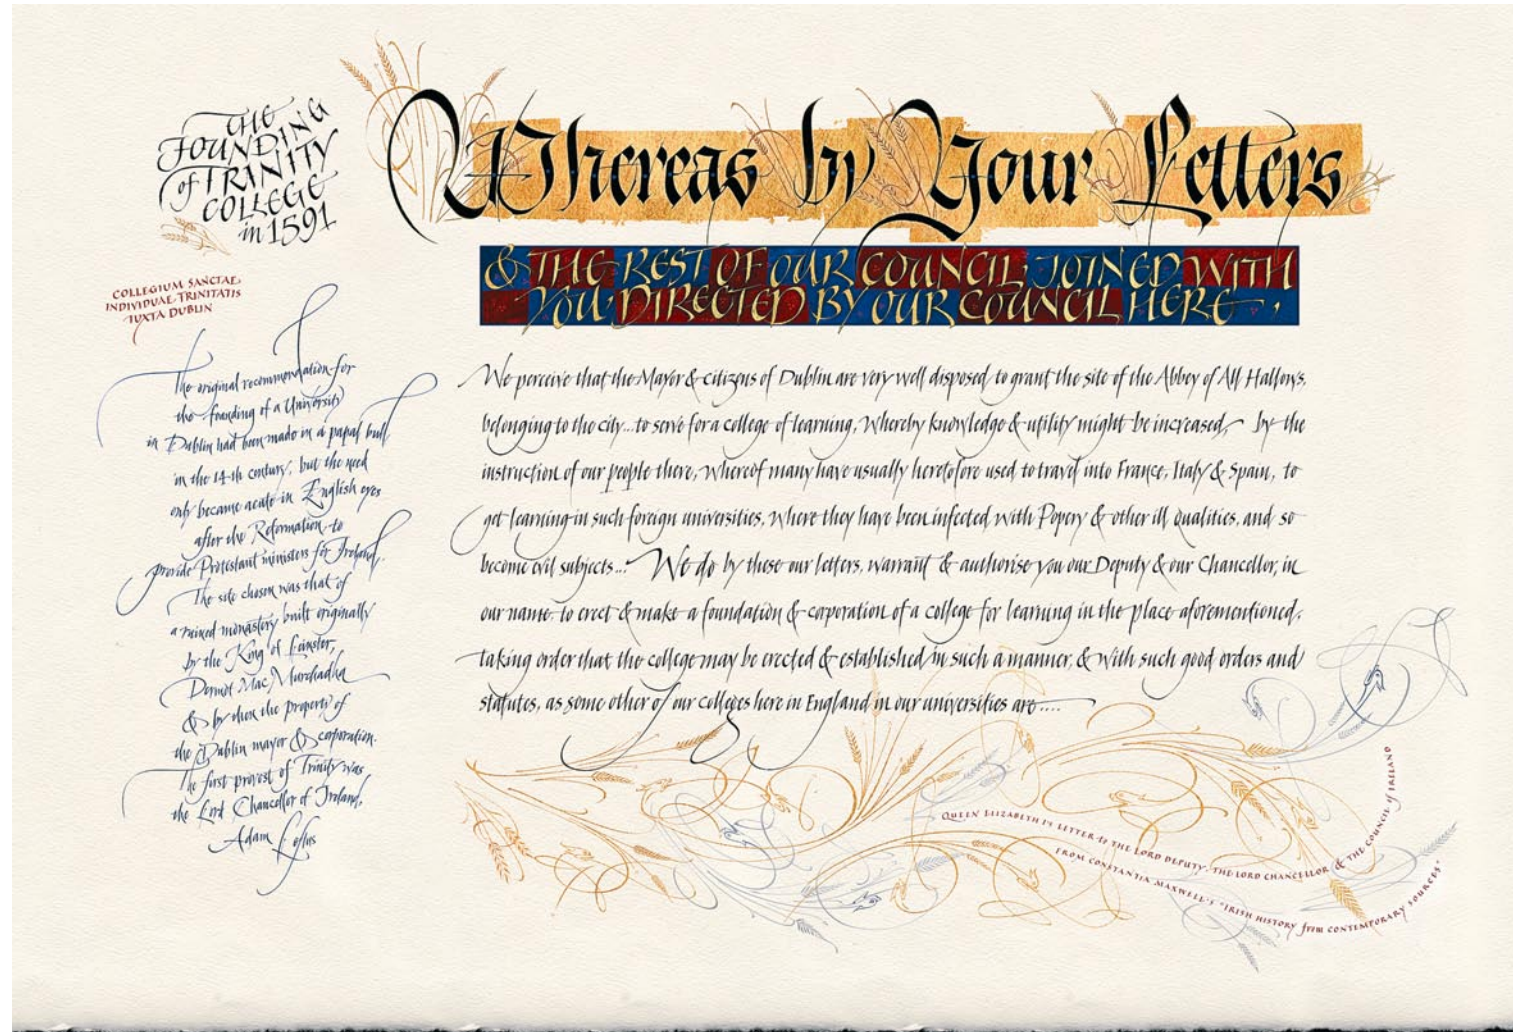 THE
FOUNDING
of TRINITY
COLLEGE
in 1591
COLLEGIUM SANCTAE
INDIVIDUAE TRINITATIS
IUXTA DUBLIN
The original recommendation for
the founding of a University
in Dublin had been made in a papal bull
in the 14th century, but the need
only became acute in English eyes
after the Reformation, to
provide Protestant ministers for Ireland.
The site chosen was that of
a ruined monastery built originally
by the King of Leinster,
Dermot Mac Murchadha
& by then the property of
the Dublin mayor & corporation.
The first provost of Trinity was
the Lord Chancellor of Ireland,
Adam Loftus
Whereas by Your Letters
& THE REST OF OUR COUNCIL JOINED WITH
YOU, DIRECTED BY OUR COUNCIL HERE,
We perceive that the Mayor & citizens of Dublin are very well disposed to grant the site of the Abbey of All Hallows,
belonging to the city... to serve for a college of learning, whereby knowledge & utility might be increased, by the
instruction of our people there, whereof many have usually heretofore used to travel into France, Italy & Spain, to
get learning in such foreign universities, where they have been infected with Popery & other ill qualities, and so
become evil subjects... We do by these our letters, warrant & authorise you our Deputy & our Chancellor, in
our name to erect & make a foundation & corporation of a college for learning in the place aforementioned,
taking order that the college may be erected & established in such a manner, & with such good orders and
statutes, as some other of our colleges here in England in our universities are....
QUEEN ELIZABETH I's LETTER to THE LORD DEPUTY, THE LORD CHANCELLOR & THE COUNCIL of IRELAND
FROM CONSTANTIA MAXWELL'S "IRISH HISTORY from CONTEMPORARY SOURCES"